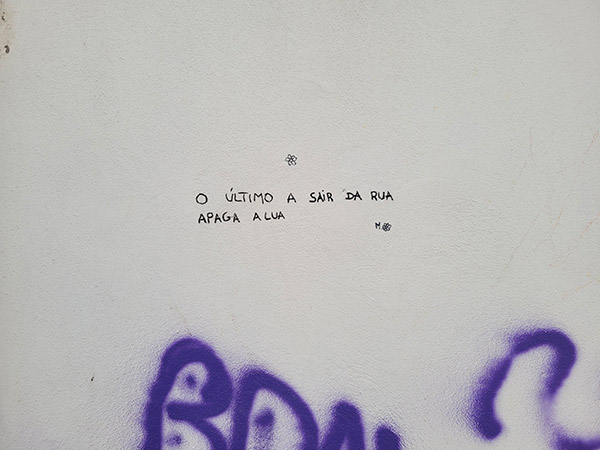 O ÚLTIMO A SAIR DA RUA
APAGA A LUA
M.